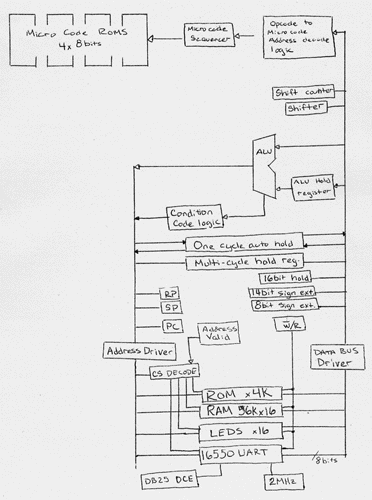 Micro Code ROMS
4x 8bits
Microcode
Sequencer
Opcode to
Microcode
Address decode
logic
Shift counter
Shifter
ALU
ALU Hold
register
Condition
Code logic
One cycle auto hold
Multi-cycle hold reg.
16bit hold
14bit sign ext.
8bit sign ext.
RP
SP
PC
W/R
Address
Valid
Address Driver
DATA BUS
Driver
CS DECODE
ROM x4K
RAM 56Kx16
LEDS x16
16550 UART
/8bits
DB25 DCE
2MHz